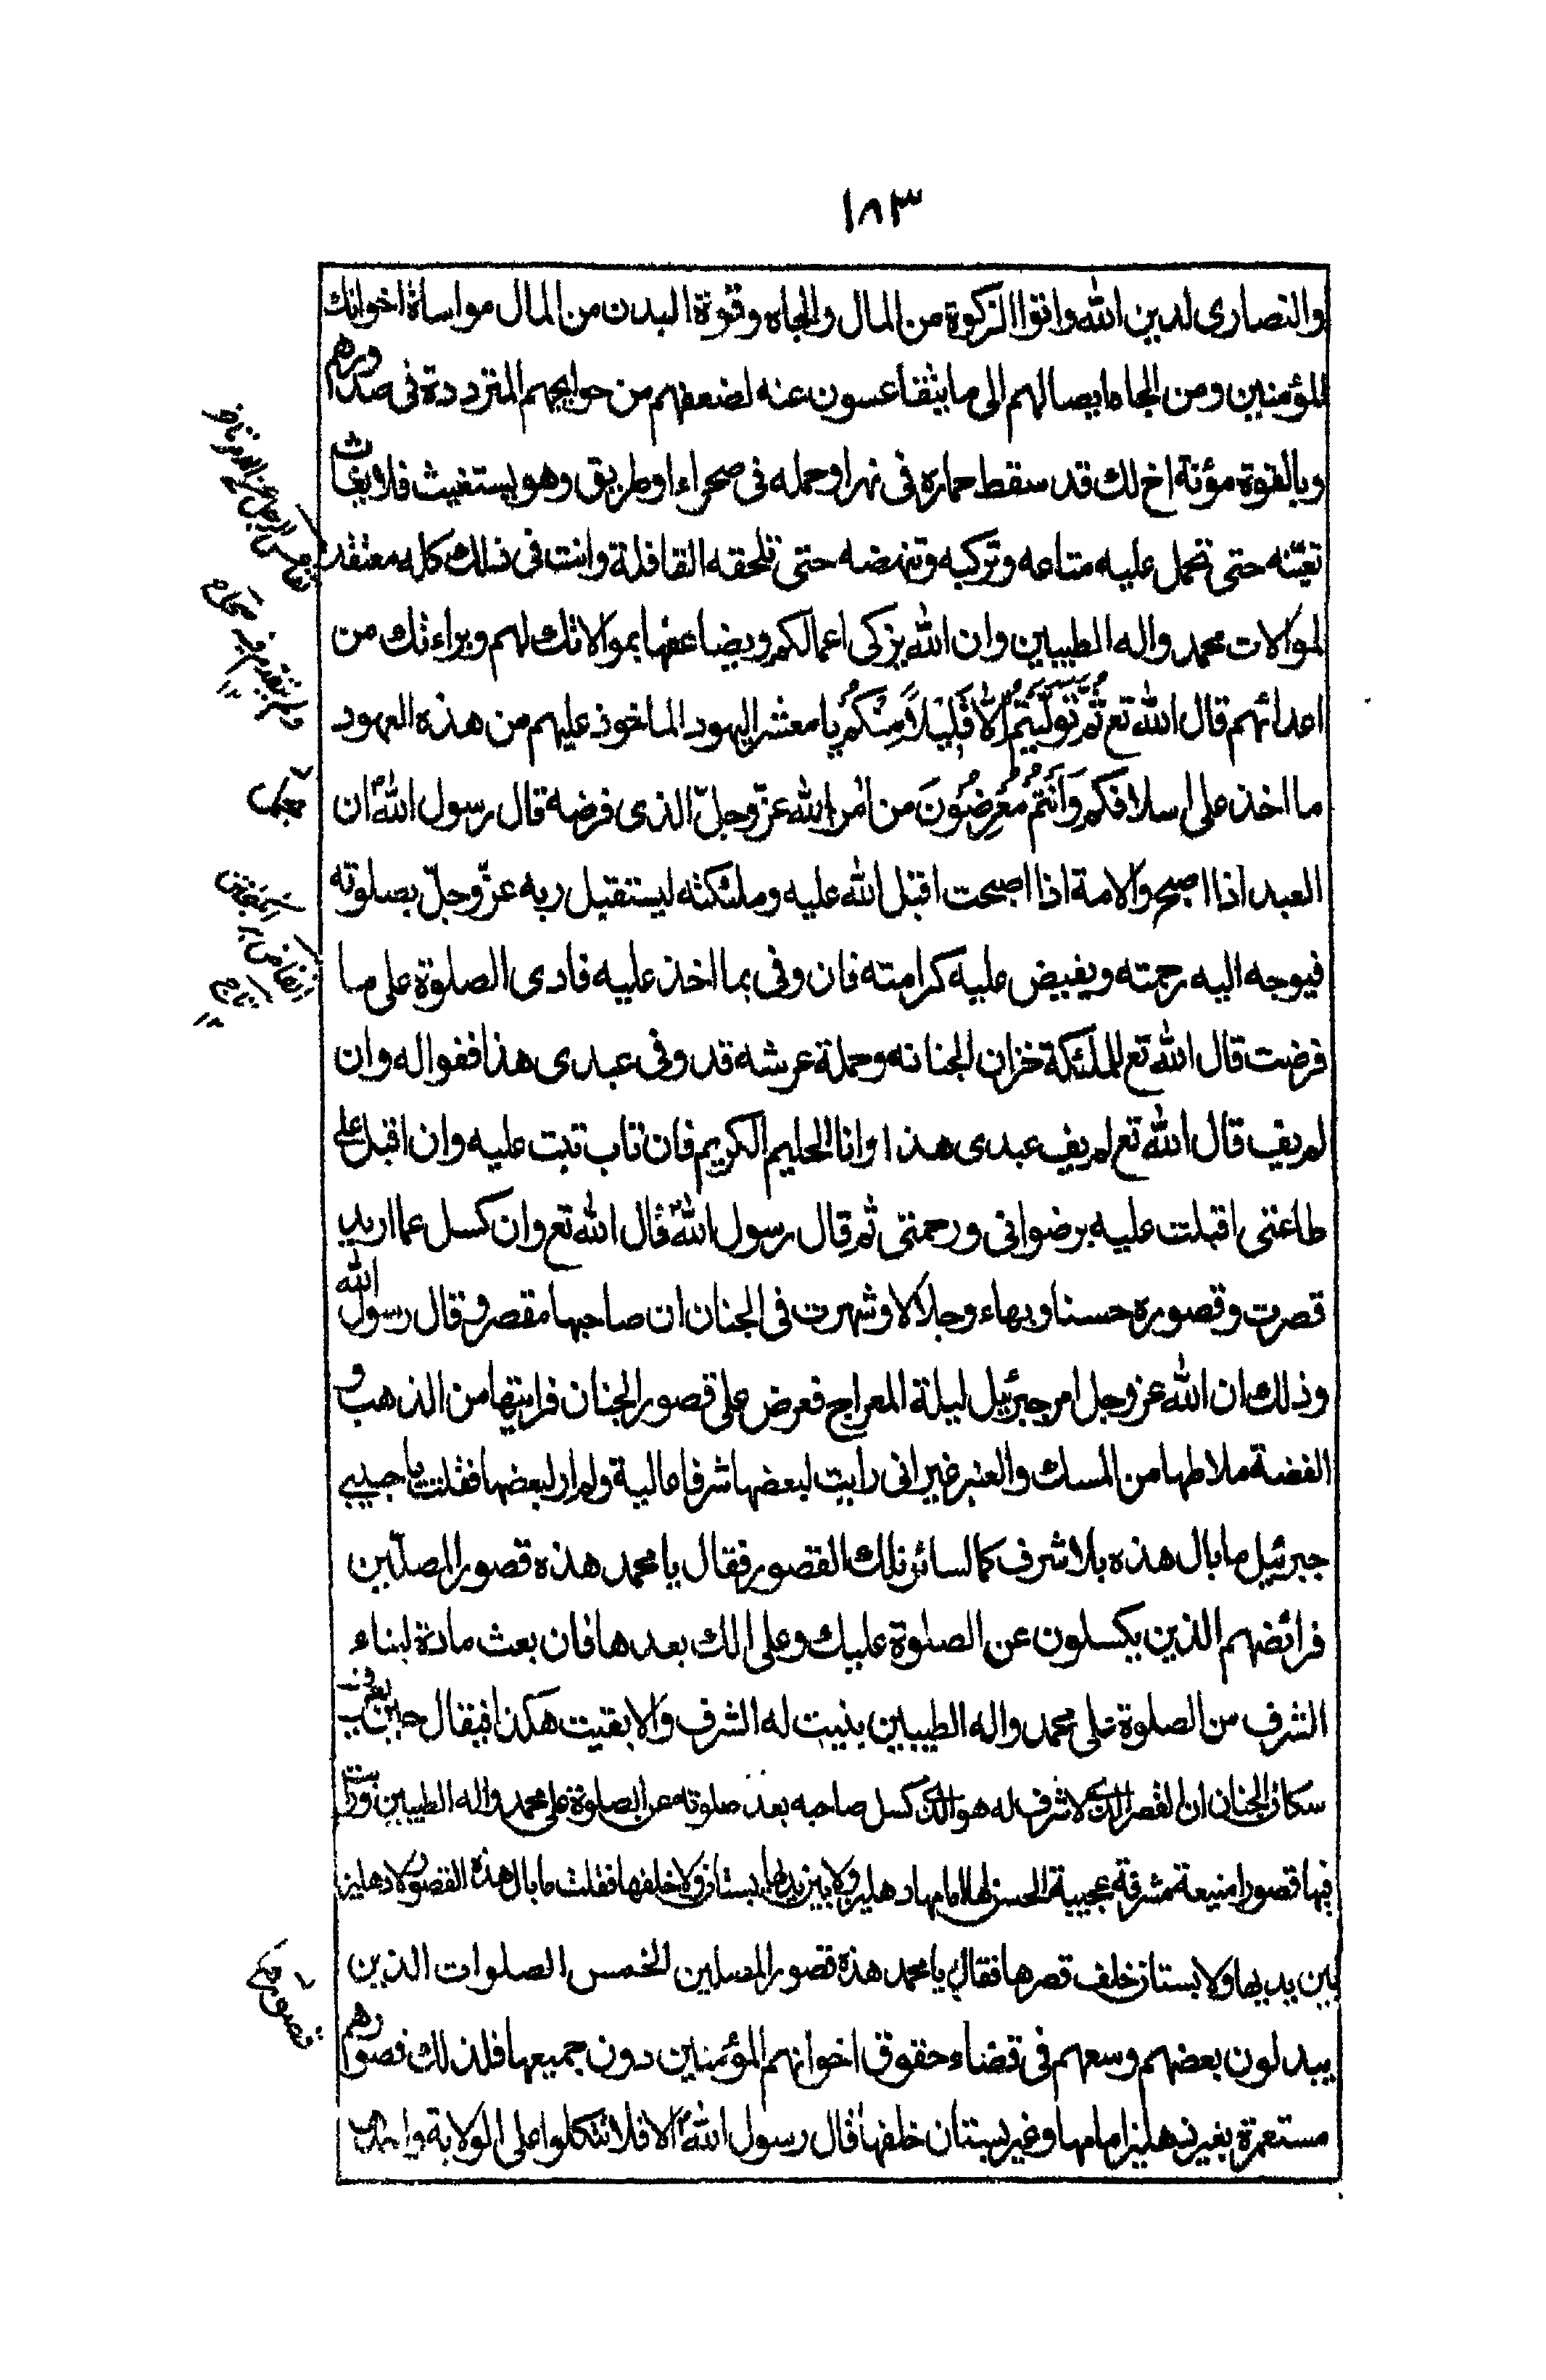 ١٨٣
والنصارى لدين الله واتوا الزكوة من المال والجاه وقوة البدن من المال مواساة اخوانك
المؤمنين ومن الجاه ايصالهم الى ما يتقاعسون عنه لضعفهم من حوايجهم المترددة فى صدورهم
وبالقوة مؤنة اخ لك قد سقط حماره فى نهر او حمله فى صحراء او طريق وهو يستغيث فلا يغاث
تعينه حتى تحمل عليه متاعه وتركبه وتنهضه حتى تلحقه القافلة وانت فى ذلك كله معتقد
لموالات محمد واله الطيبين وان الله يزكى اعمالكم ويضاعفها بموالاتك لهم وبراءتك من
اعدائهم قال الله تع ثُمَّ تَوَلَّيْتُمْ اِلَّا قَلِيلًا مِنْكُمْ يا معشر اليهود الماخوذ عليهم من هذه العهود
ما اخذ على اسلافكم وَاَنْتُمْ مُعْرِضُونَ من امر الله عزّ وجلّ الذى فرضه قال رسول الله ان
العبد اذا اصبح والامة اذا اصبحت اقبل الله عليه وملئكته ليستقبل ربه عزّ وجلّ بصلوته
فيوجه اليه رحمته ويفيض عليه كرامته فان وفى بما اخذ عليه فادى الصلوة على ما
فرضت قال الله تع للملئكة خزان الجنانه وحملة عرشه قد وفى عبدى هذا ففوا له وان
لم يف قال الله تع لم يف عبدى هذا وانا الحليم الكريم فان تاب تبت عليه وان اقبل على
طاعتى اقبلت عليه برضوانى ورحمتى ثم قال رسول الله قال الله تع وان كسل عما اريد
قصرت وقصوره حسنا وبهاء وجلالا وشهرت فى الجنان ان صاحبها مقصر وقال رسول الله
وذلك ان الله عز وجل امر جبرئيل ليلة المعراج فعرض على قصور الجنان فرايتها من الذهب و
الفضة ملاطها من المسك والعنبر غير انى رايت لبعضها شرفا عالية ولم ار لبعضها فقلت يا حبيبى
جبرئيل ما بال هذه بلا شرف كما لسائر تلك القصور فقال يا محمد هذه قصور المصلين
فرائضهم الذين يكسلون عن الصلوة عليك وعلى الك بعدها فان بعث مادة لبناء
الشرف من الصلوة على محمد واله الطيبين بنيت له الشرف والا بقيت هكذا فيقال حين يعرف
سكان الجنان ان القصر الذى لا شرف له هو الذى كسل صاحبه بعد صلوته عن الصلوة على محمد واله الطيبين ورايت
فيها قصورا منيعة مشرفة عجيبة الحسن ليس لها امامها دهليز ولا بين يديها بستان ولا خلفها فقلت ما بال هذه القصور لا دهليز
بين يديها ولا بستان خلف قصرها فقال يا محمد هذه قصور المصلين الخمس الصلوات الذين
يبدلون بعضهم وسعهم فى قضاء حقوق اخوانهم المؤمنين دون جميعها فلذلك قصورهم
مستعمرة بغير دهليز امامها وغير بستان خلفها قال رسول الله الا فلا تتكلوا على الولاية